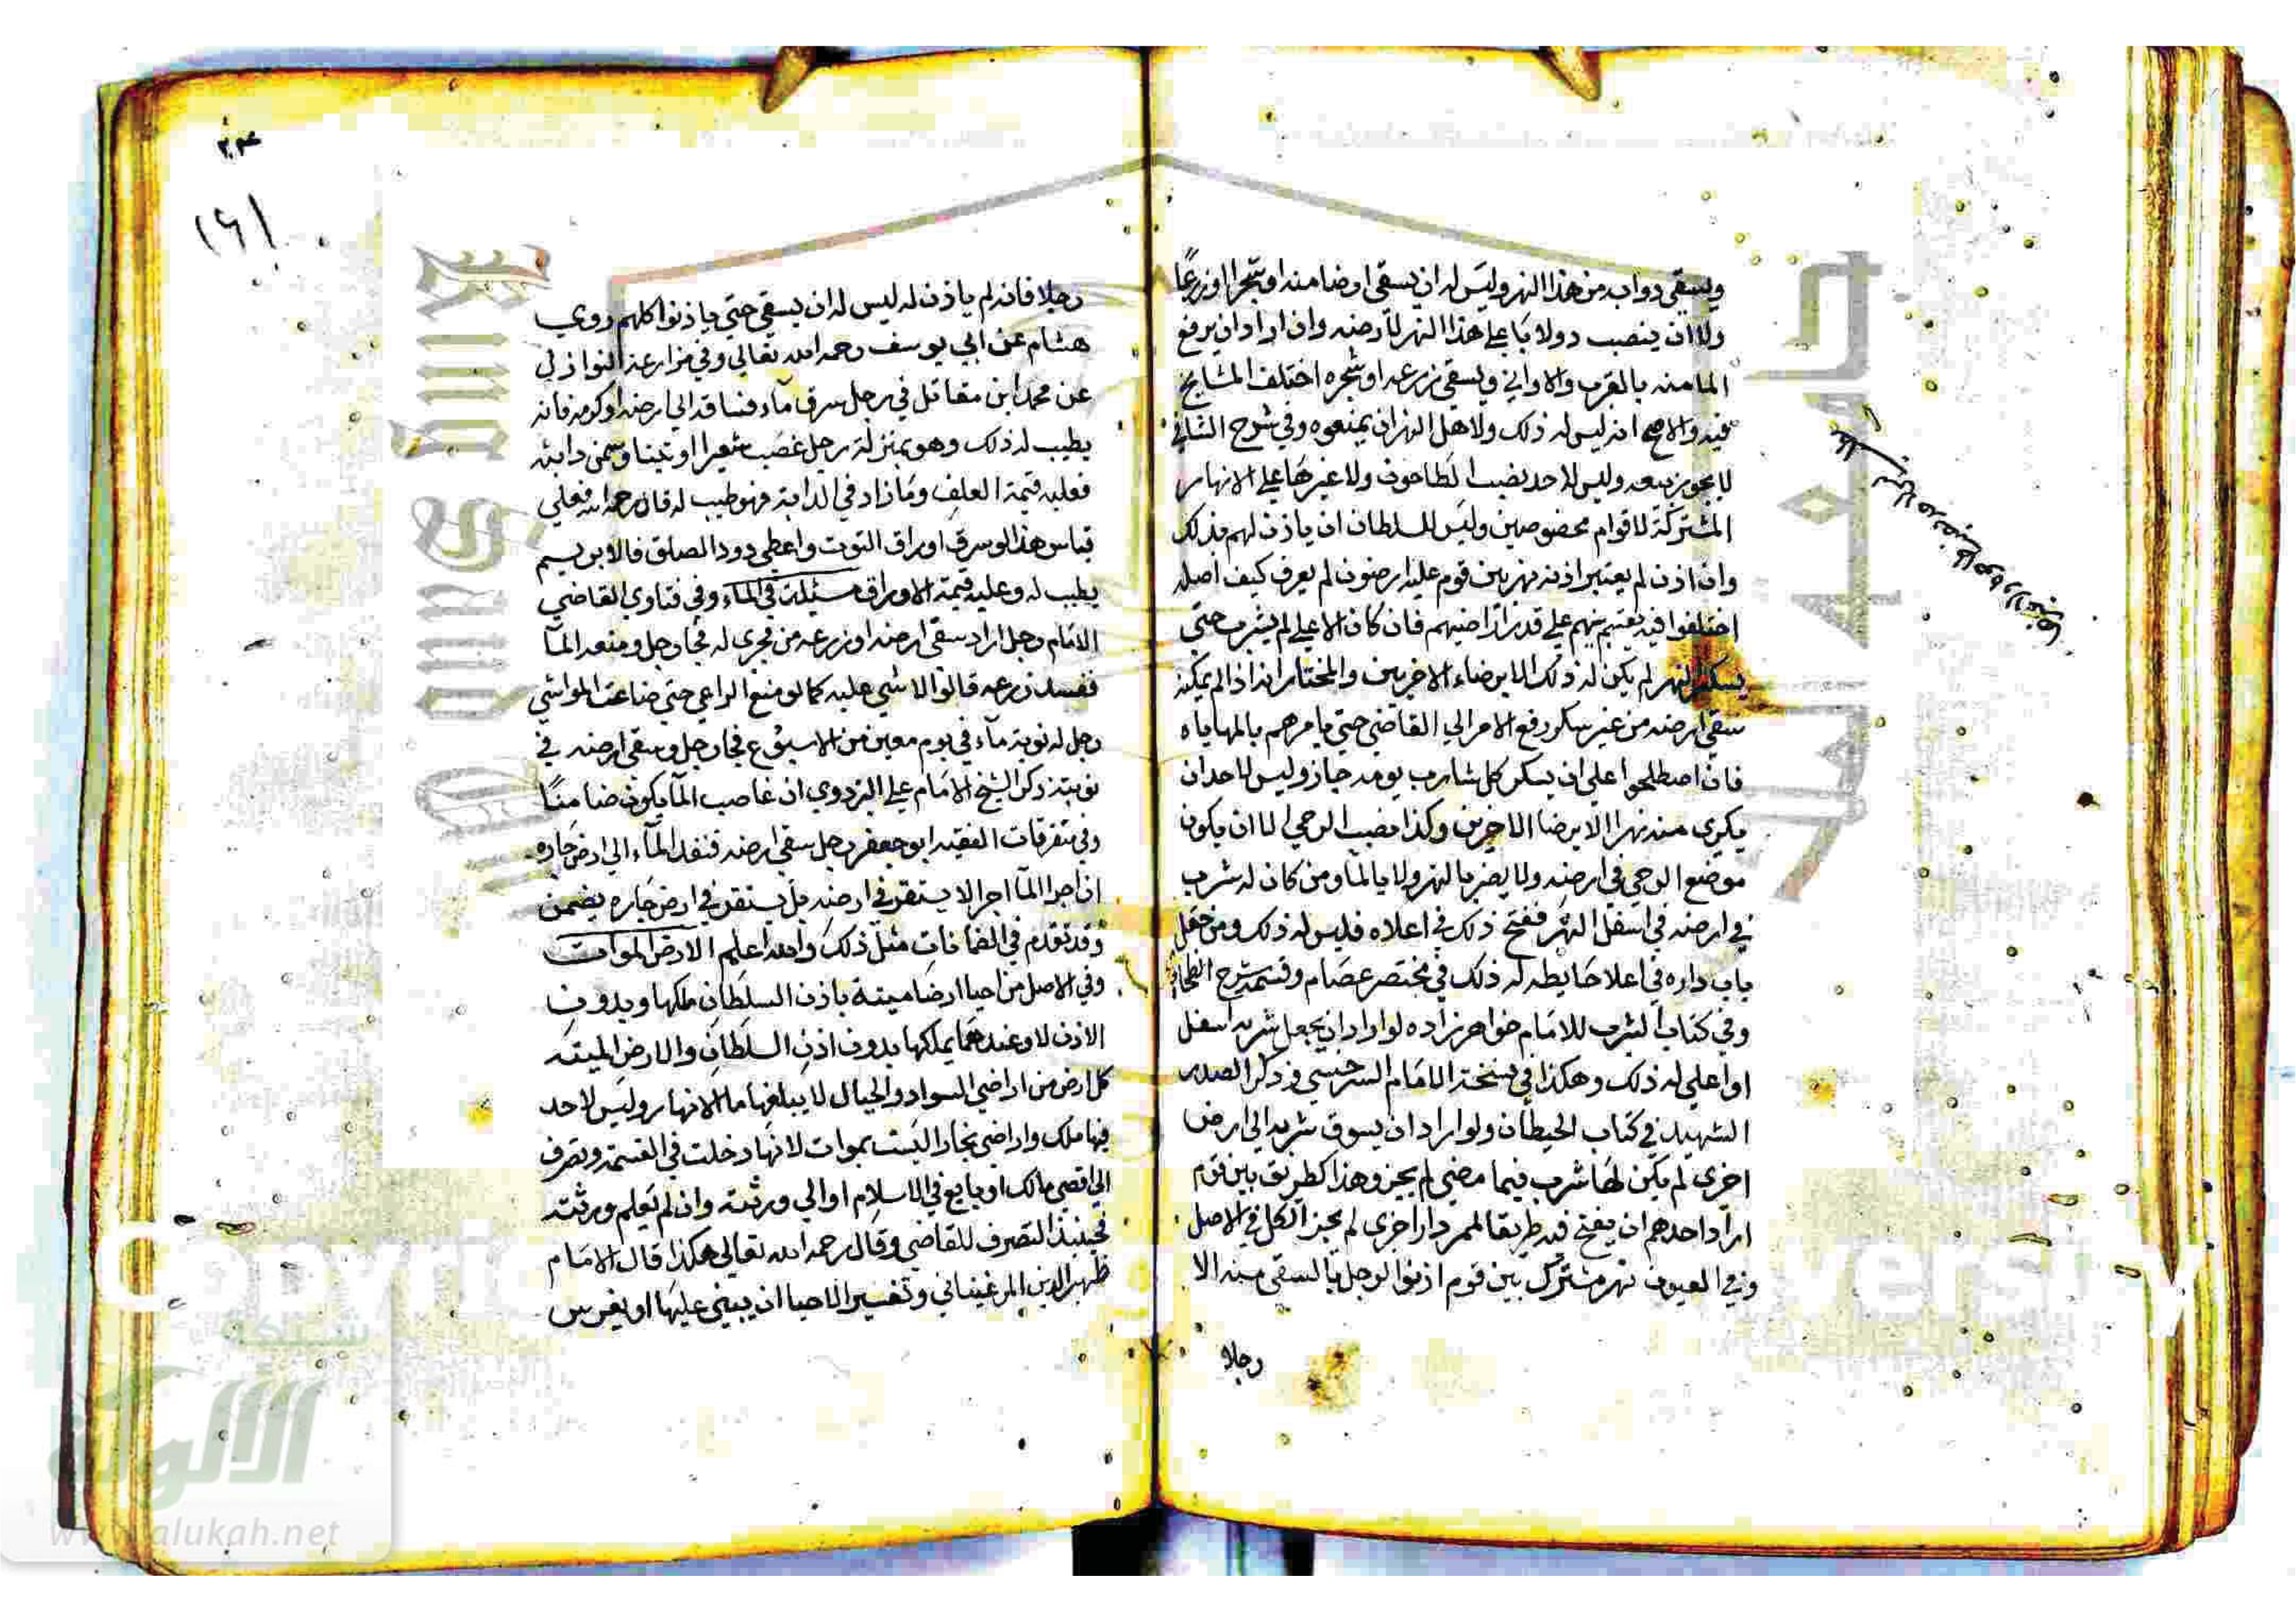 ويسقي دوابه من هذا النهر وليس له ان يسقي ارضا منه او شجرا او زرعًا
ولا ان ينصب دولابا على هذا النهر لارضه وان اراد ان يرفع
الما منه بالقرب والاواني ويسقي زرعه او شجره اختلف المشايخ
فيه والاصح انه ليس له ذلك ولاهل النهر ان يمنعوه وفي شرح الشافي
لا يجوز بيعه وليس لاحد نصب الطاحون ولا غيرها على الانهار
المشتركة لاقوام مخصوصين وليس للسلطان ان ياذن لهم فذلك
وان اذن لم يعتبر اذنه نهر بين قوم عليه ارضون لم يعرف كيف اصله
اختلفوا فيه يقسم بينهم على قدر اراضيهم فان كان الاعلى لم يشرب حتى
يسكر النهر لم يكن له ذلك الا برضاء الاخرين والمختار انه اذا لم يمكنه
سقي ارضه من غير سكر رفع الامر الي القاضي حتى يامرهم بالمهاياه
فان اصطلحوا على ان يسكر كل شارب يومه جاز وليس لاحد ان
يكري منه نهرا الا برضا الاخرين وكذا نصب الرحي الا ان يكون
موضع الرحي في ارضه ولا يضر بالنهر ولا بالما ومن كان له شرب
في ارضه في اسفل النهر ففتح ذلك في اعلاه فليس له ذلك ومن جعل
باب داره في اعلا حايطه له ذلك في مختصر عصام وقسمة شرح الطحا
وفي كتاب الشرب للامام خواهرزاده لو اراد ان يجعل شربه اسفل
او اعلى له ذلك وهكذا في نسخة الامام السرخسي وذكر الصدر
الشهيد في كتاب الحيطان ولو اراد ان يسوق شربه الي ارض
اخري لم يكن لها شرب فيما مضي لم يجز وهذا كطريق بين قوم
اراد احدهم ان يفتح فيه طريقا لممر دار اخرى لم يجز الكل في الاصل
وفي العيون نهر مشترك بين قوم اذنوا لرجل بالسقي منه الا
رجلا
٢٠٣
١٦١
رجلا فانه لم ياذن له ليس له ان يسقي حتي ياذنوا كلهم روي
هشام عن ابي يوسف رحمه الله تعالي وفي مزارعة النوازل
عن محمد ابن مقاتل في رجل سرق مآء فساقه الي ارضه او كرمه فانه
يطيب له ذلك وهو بمنزلة رجل غصب شعيرا او تبنا وسمن دابته
فعليه قيمة العلف وما زاد في الدابة فهو طيب له قال رحمه الله فعلي
قياس هذا لو سرق اوراق التوت واعطي دود الفيلق فالابريسم
يطيب له وعليه قيمة الاوراق مسئلة في الماء وفي فتاوي القاضي
الامام رجل اراد سقي ارضه او زرعه من مجرى له فجا رجل ومنعه المآ
ففسد زرعه قالوا لا شي عليه كما لو منع الراعي حتي ضاعت المواشي
رجل له نوبة مآء في يوم معين من الاسبوع فجا رجل وسقي ارضه في
نوبته ذكر الشيخ الامام علي البزدوي ان غاصب المآ يكون ضامنًا
وفي متفرقات الفقيه ابو جعفر رجل سقي ارضه فنفذ المآء الي ارض جاره
ان اجرا المآ اجرا لا يستقر في ارضه بل يستقر في ارض جاره يضمن
وقد تقدم في الضمانات مثل ذلك والله اعلم الارض الموات
وفي الاصل من احيا ارضا ميتة باذن السلطان ملكها وبدون
الاذن لا وعندهما يملكها بدون اذن السلطان والارض الميتة
كل ارض من اراضي السواد والجبال لا يبلغها ما الانهار وليس لاحد
فيها ملك واراضي بخارا ليست بموات لانها دخلت في القسمة وتصرف
الي اقصي مالك او بايع في الاسلام او الي ورثته وان لم تعلم ورثته
فحينئذ التصرف للقاضي وقال رحمه الله تعالي هكذا قال الامام
ظهير الدين المرغيناني وتفسير الاحيا ان يبني عليها او يغرس
شبكة
الألوكة
www.alukah.net